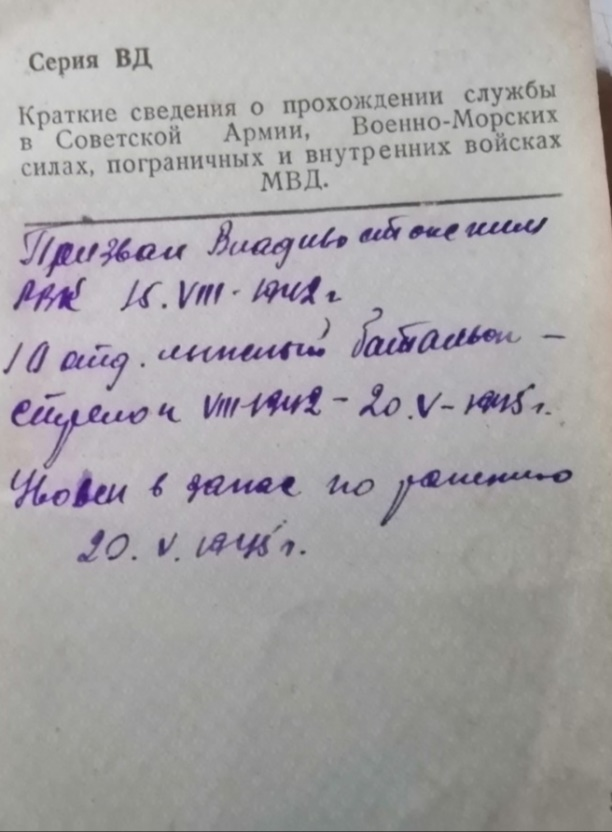 Серия ВД
Краткие сведения о прохождении службы
в Советской Армии, Военно-Морских
силах, пограничных и внутренних войсках
МВД.
Призван Владивостокским
РВК 15.VIII-1942г
10 отд. лыжный батальон -
стрелок VIII-1942 - 20.V-1945г.
Уволен в запас по ранению
20.V.1945г.